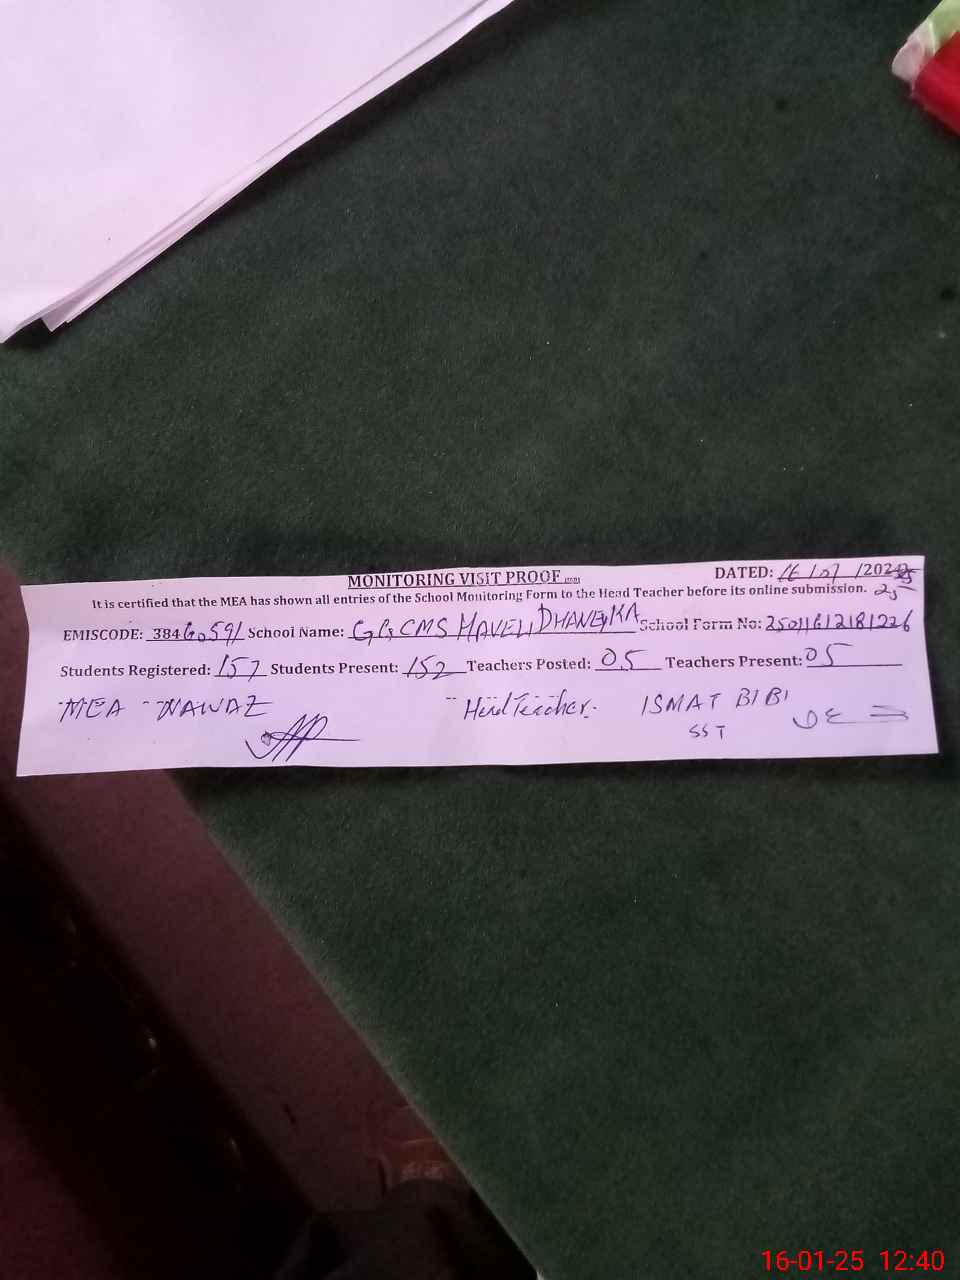 MONITORING VISIT PROOF
DATED: 16/01/2025
It is certified that the MEA has shown all entries of the School Monitoring Form to the Head Teacher before its online submission.
EMISCODE: 38460591 School Name: GGCMS HAVELI DHANEKA School Form No: 25011612181226
Students Registered: 157 Students Present: 152 Teachers Posted: 05 Teachers Present: 05
MEA NAWAZ Head Teacher. ISMAT BIBI
SST
16-01-25 12:40